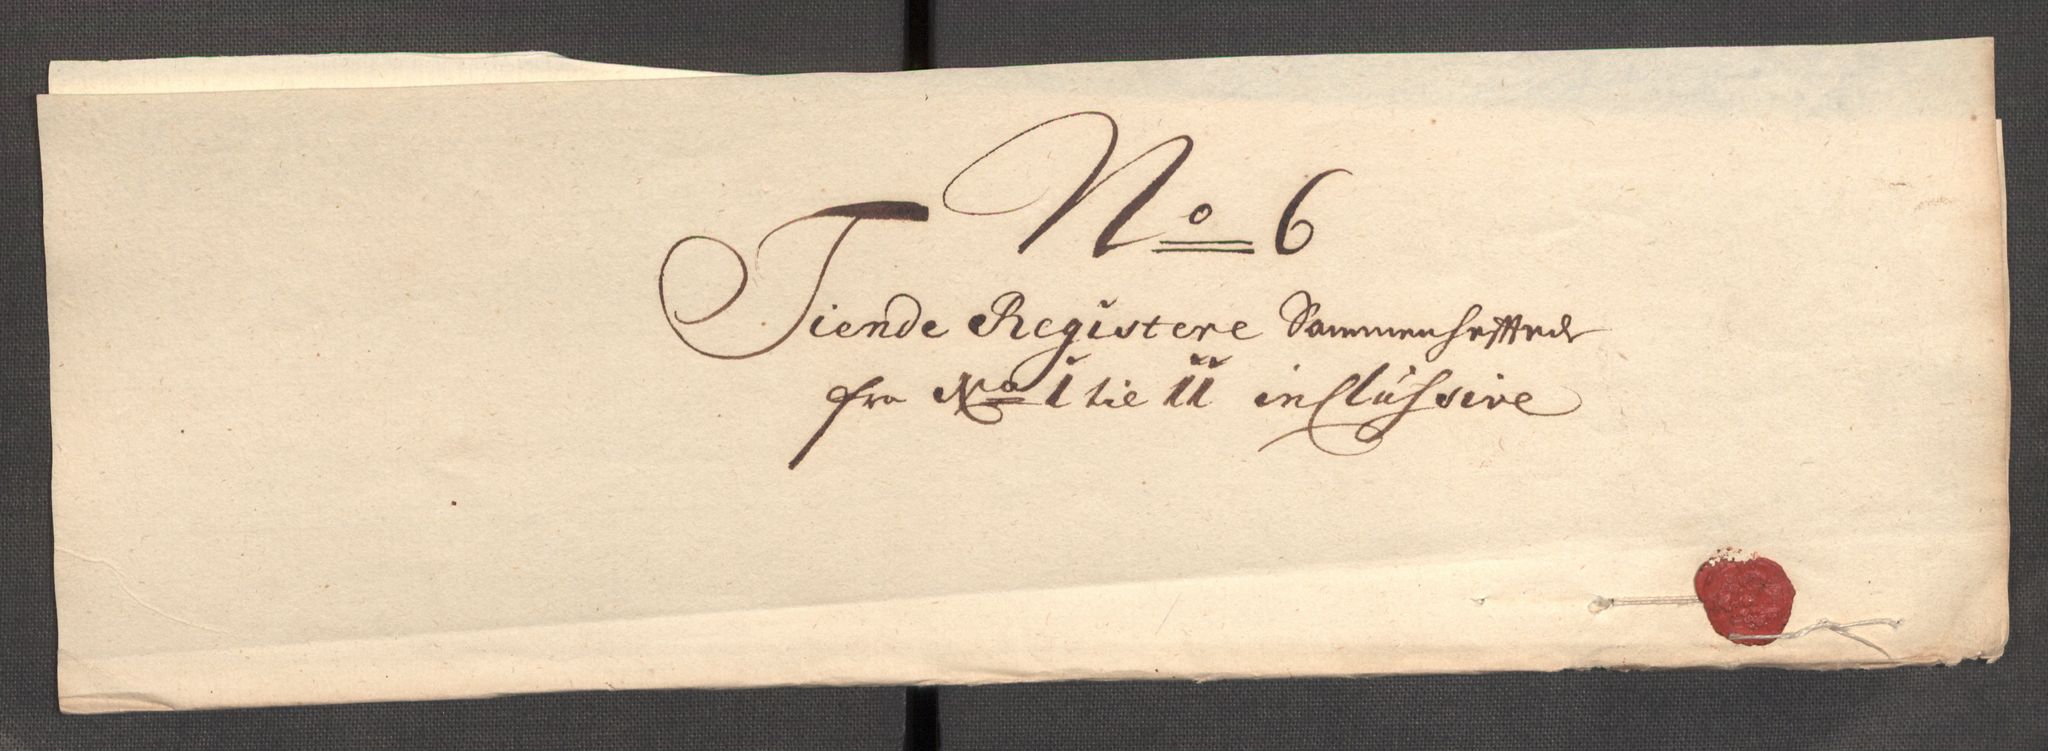 No 6
Tiende Registere Sammenhefftede
fra No 1 til 11 inClusive